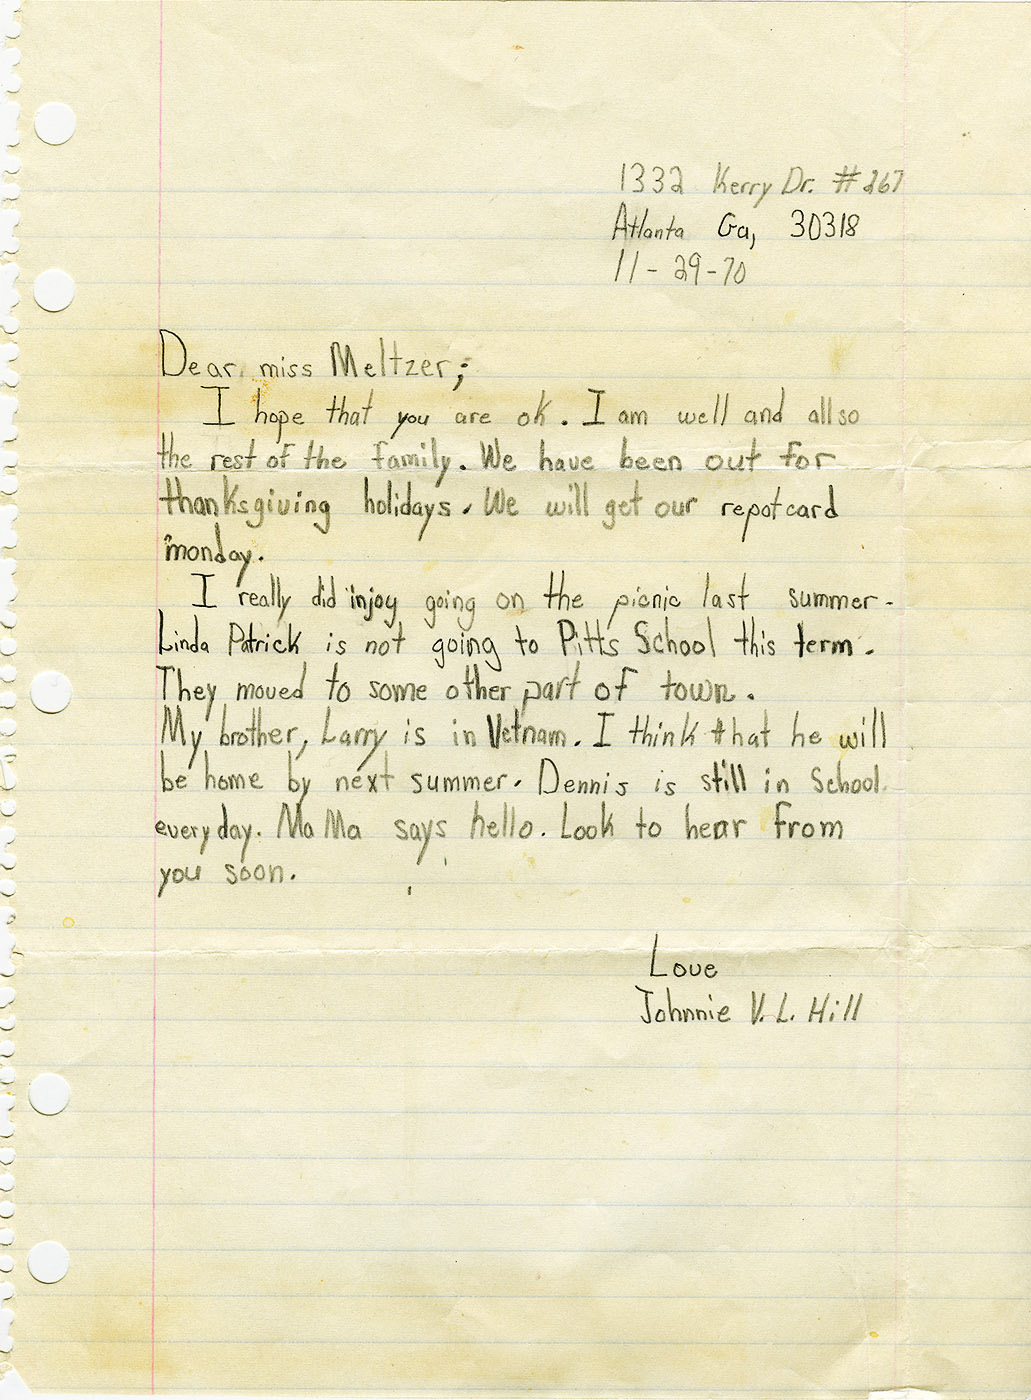 1332 Kerry Dr. #267
Atlanta Ga, 30318
11-29-70
Dear miss Meltzer;
I hope that you are ok. I am well and allso
the rest of the family. We have been out for
thanksgiving holidays. We will get our repotcard
monday.
I really did injoy going on the picnic last summer.
Linda Patrick is not going to Pitts School this term.
They moved to some other part of town.
My brother, Larry is in Vetnam. I think that he will
be home by next summer. Dennis is still in School.
everyday. Ma Ma says hello. Look to hear from
you soon.
Love
Johnnie V. L. Hill